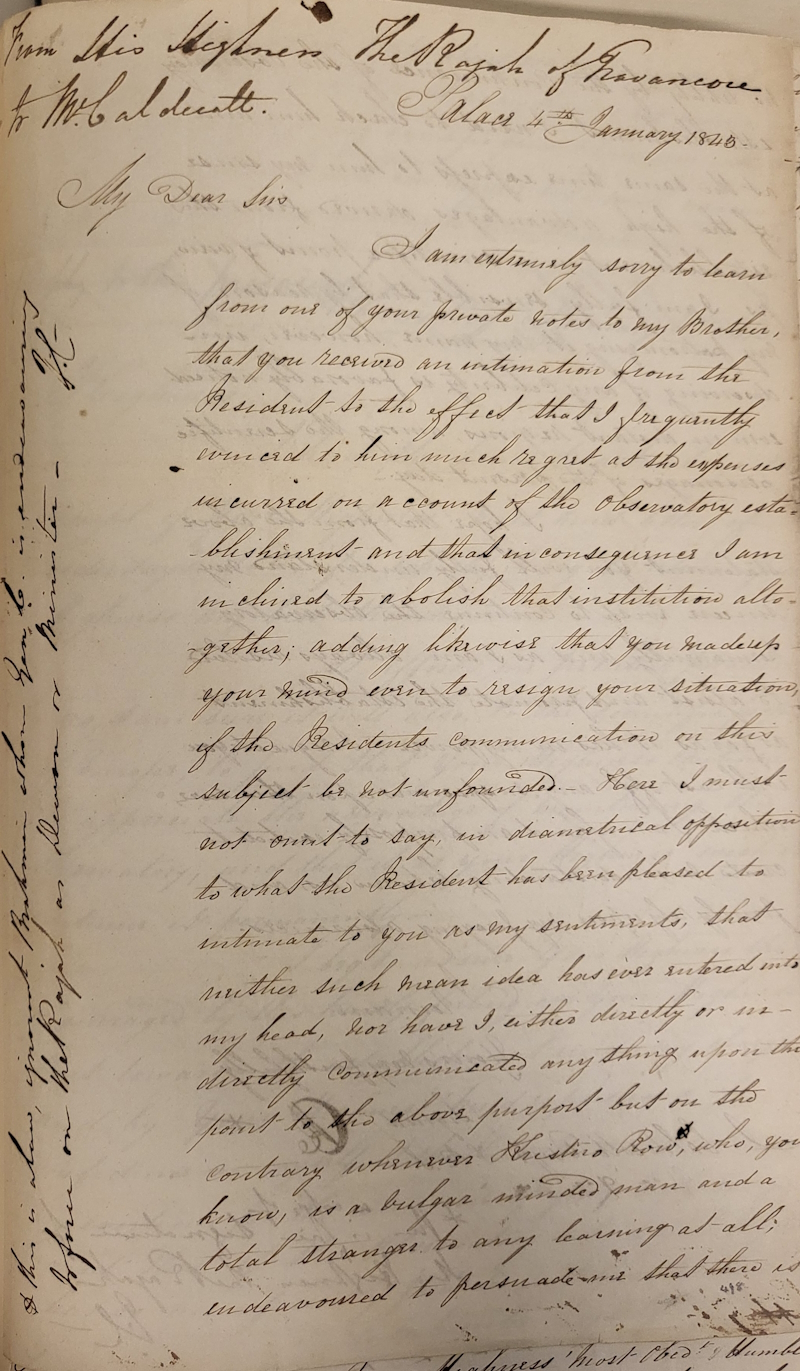 From His Highness The Rajah of Travancore
to Mr. Caldecott.
Palace 4th January 1840-
My Dear Sir
I am extremely sorry to learn
from one of your private notes to my Brother,
that you received an intimation from the
Resident to the effect that I frequently
evinced to him much regret at the expenses
incurred on account of the Observatory esta-
-blishment and that in consequence I am
inclined to abolish that institution alto-
-gether; adding likewise that you made up
your mind even to resign your situation,
if the Residents communication on this
subject be not unfounded.- Here I must
not omit to say, in diametrical opposition
to what the Resident has been pleased to
intimate to you as my sentiments, that
neither such mean idea has ever entered into
my head, nor have I, either directly or in-
directly communicated any thing upon the
point to the above purport but on the
contrary whenever Kristno Row, who, you
know, is a vulgar minded man and a
total stranger to any learning at all;
endeavoured to persuade me that there is
Highness' most Obedt Humble
This is a low, ignorant Brahmin whom Genl. is endeavouring
to force on the Rajah as Dewan or Minister -